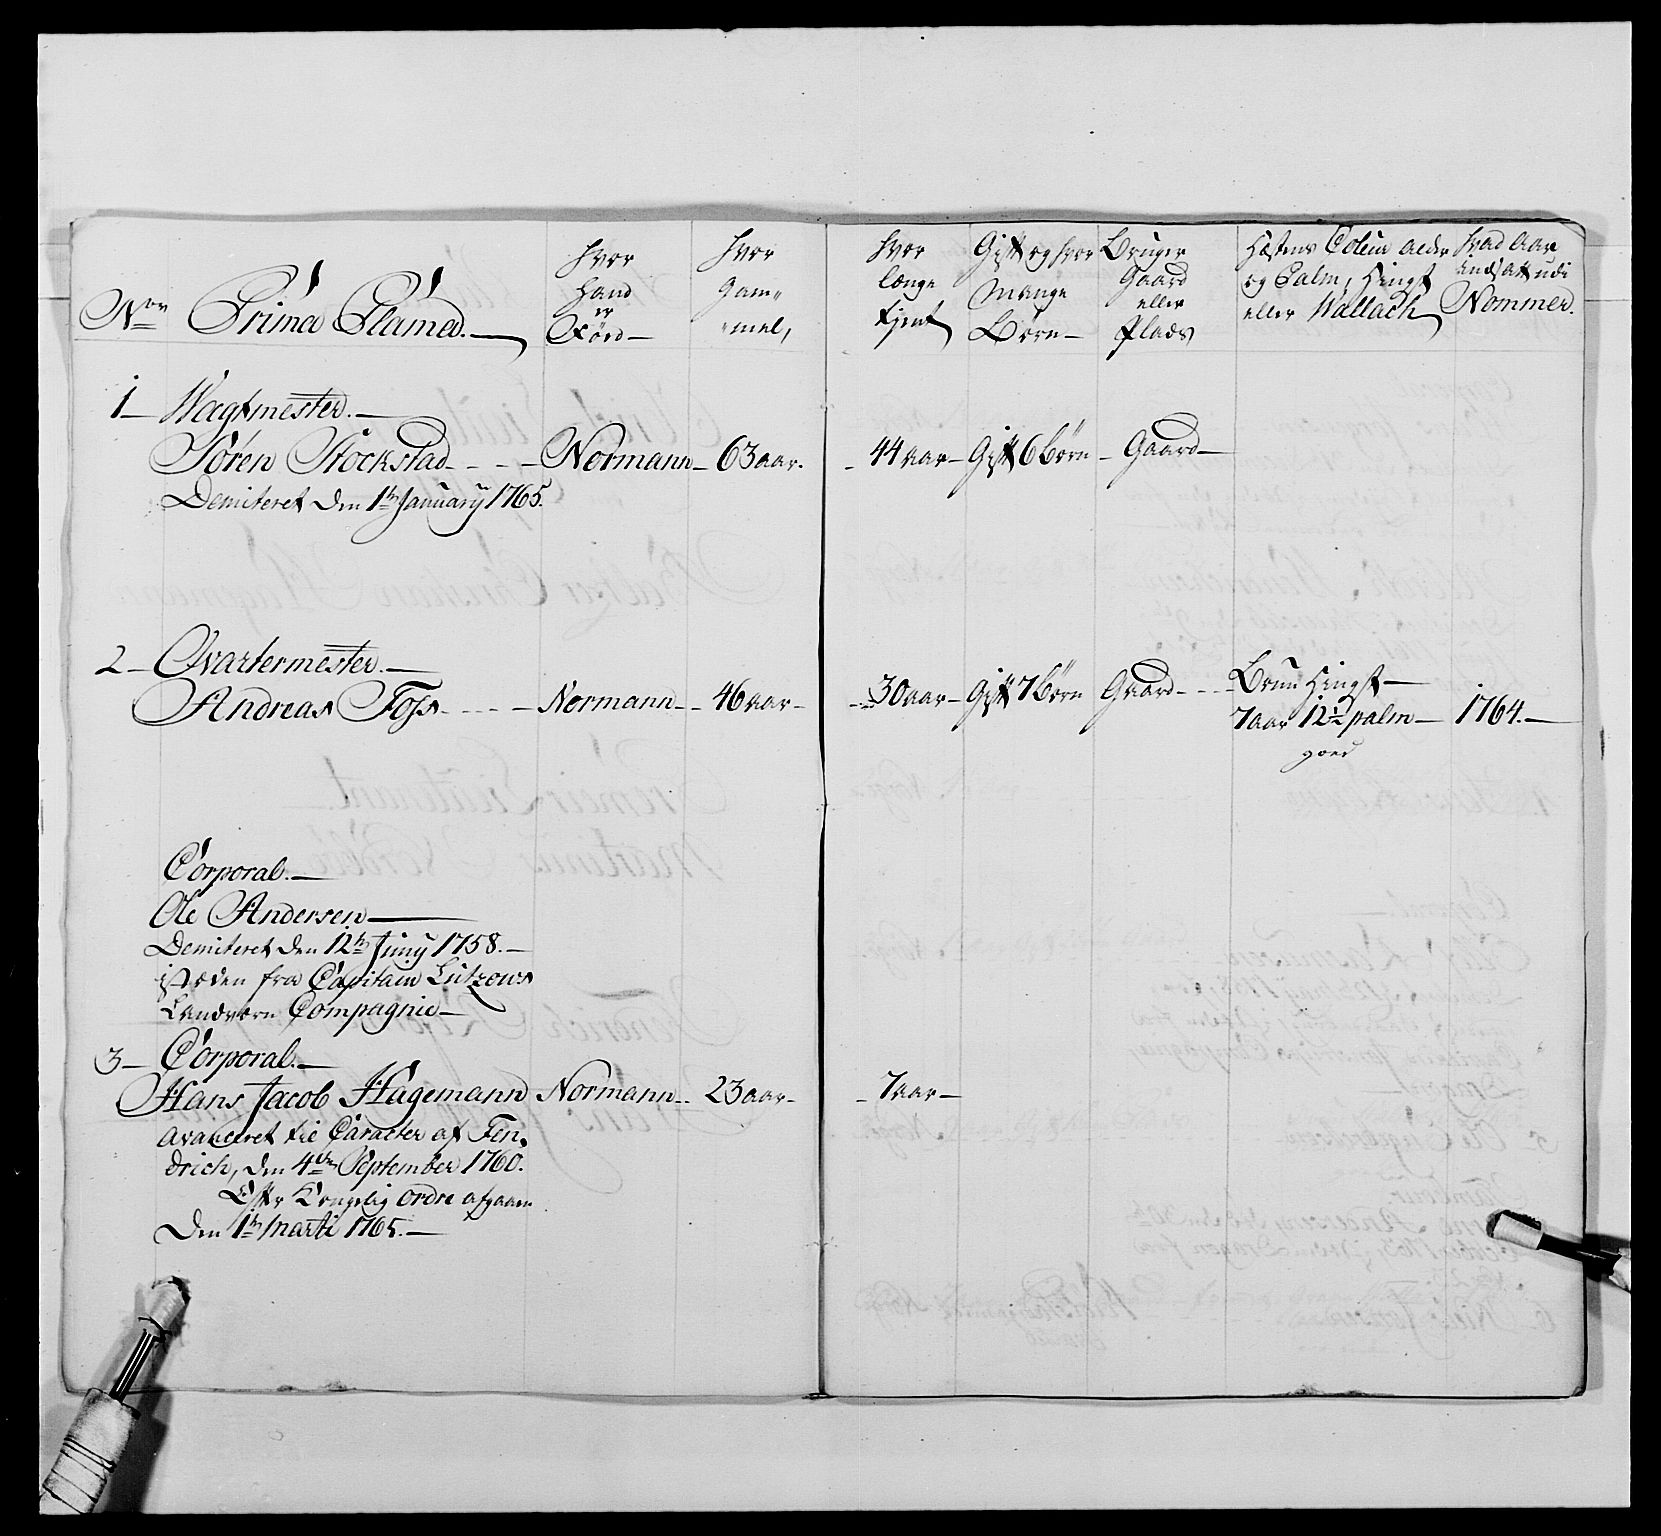 Nor Prima Plana.
Hvor Hand er Fød
Hvor Gam„ „mel,
Hvor længe tjent
Gift og hvor Mange Børn
Bruger Gaard eller Plads
Hæstens Coleur Alder og Palm, Hingst eller Wallach
Hvad Aar indsatt udi Nommer.
1 Wagtmester.
Søren Stockstad - - - Normann 63 aar. 44 aar Gift 6 Børn Gaard
Demiteret den 1te January 1765.
2 Qvartermester.
Andreas Foss - - - Normann 46 aar 30 aar Gift 7 Børn Gaard - - Brun Hingst
7 aar 12½ palm 1764.
goed
Corporal.
Ole Andersen
Demiteret den 12te Juny 1758.
istæden fra Capitain Lützows
Landværn Compagnie
3 Corporal.
Hans Jacob Hagemann Normann 23 aar 7 aar
avanceret til Caracter af Fen„
drich, den 4de September 1760.
Efter Kongelig ordre afgaaen
Den 1te Marti 1765.